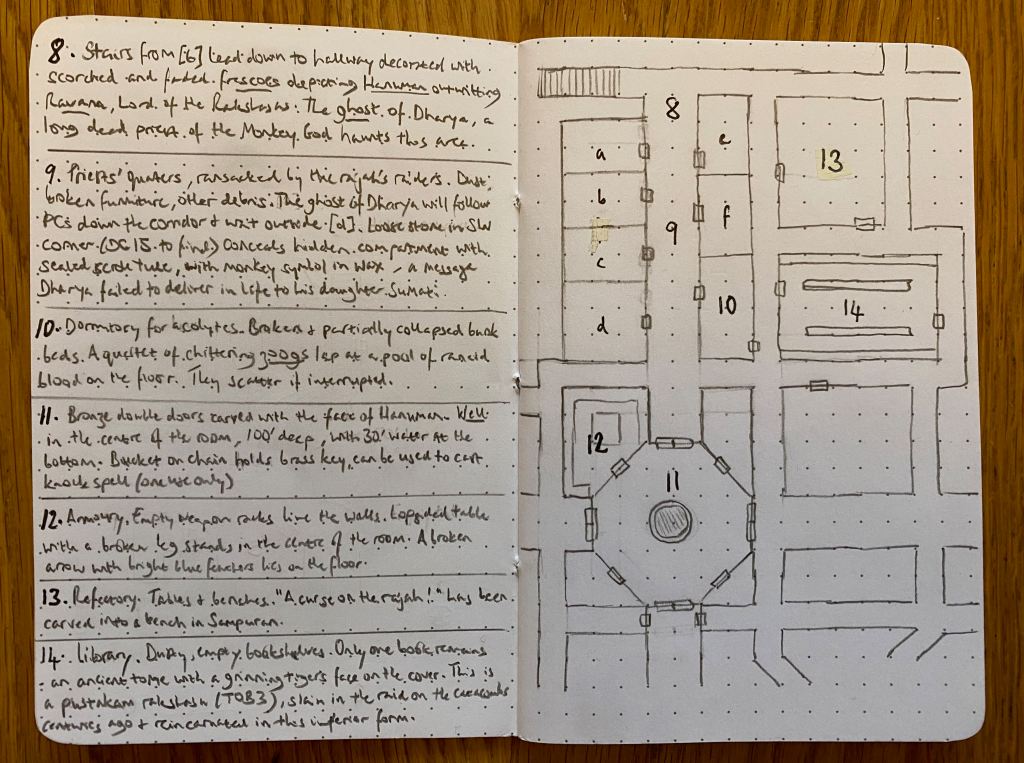 8. Stairs from [6] lead down to hallway decorated with
scorched and faded frescoes depicting Hanuman outwitting
Ravana, Lord of the Rakshasas. The ghost of Dharya, a
long dead priest of the Monkey God haunts this area.
9. Priests' quarters, ransacked by the rajah's raiders. Dust,
broken furniture, other debris. The ghost of Dharya will follow
PCs down the corridor & wait outside [d]. Loose stone in SW
corner (DC 15 to find) conceals hidden compartment with
sealed scroll tube, with monkey symbol in wax - a message
Dharya failed to deliver in life to his daughter Sumati.
10. Dormitory for acolytes. Broken & partially collapsed bunk
beds. A quartet of chittering zoogs lap at a pool of rancid
blood on the floor. They scatter if interrupted.
11. Bronze double doors carved with the face of Hanuman. Well
in the centre of the room, 100' deep, with 30' water at the
bottom. Bucket on chain holds brass key, can be used to cast
knock spell (one use only)
12. Armoury. Empty weapon racks line the walls. Lopsided table
with a broken leg stands in the centre of the room. A broken
arrow with bright blue feathers lies on the floor.
13. Refectory. Tables & benches. "A curse on the rajah!" has been
carved into a bench in Sampuran.
14. Library. Dusty, empty bookshelves. Only one book remains
an ancient tome with a grinning tiger's face on the cover. This is
a pustakam rakshasa (TOB3), slain in the raid on the catacombs
centuries ago & reincarnated in this inferior form.
8
a
e
13
b
f
9
c
10
14
d
12
11